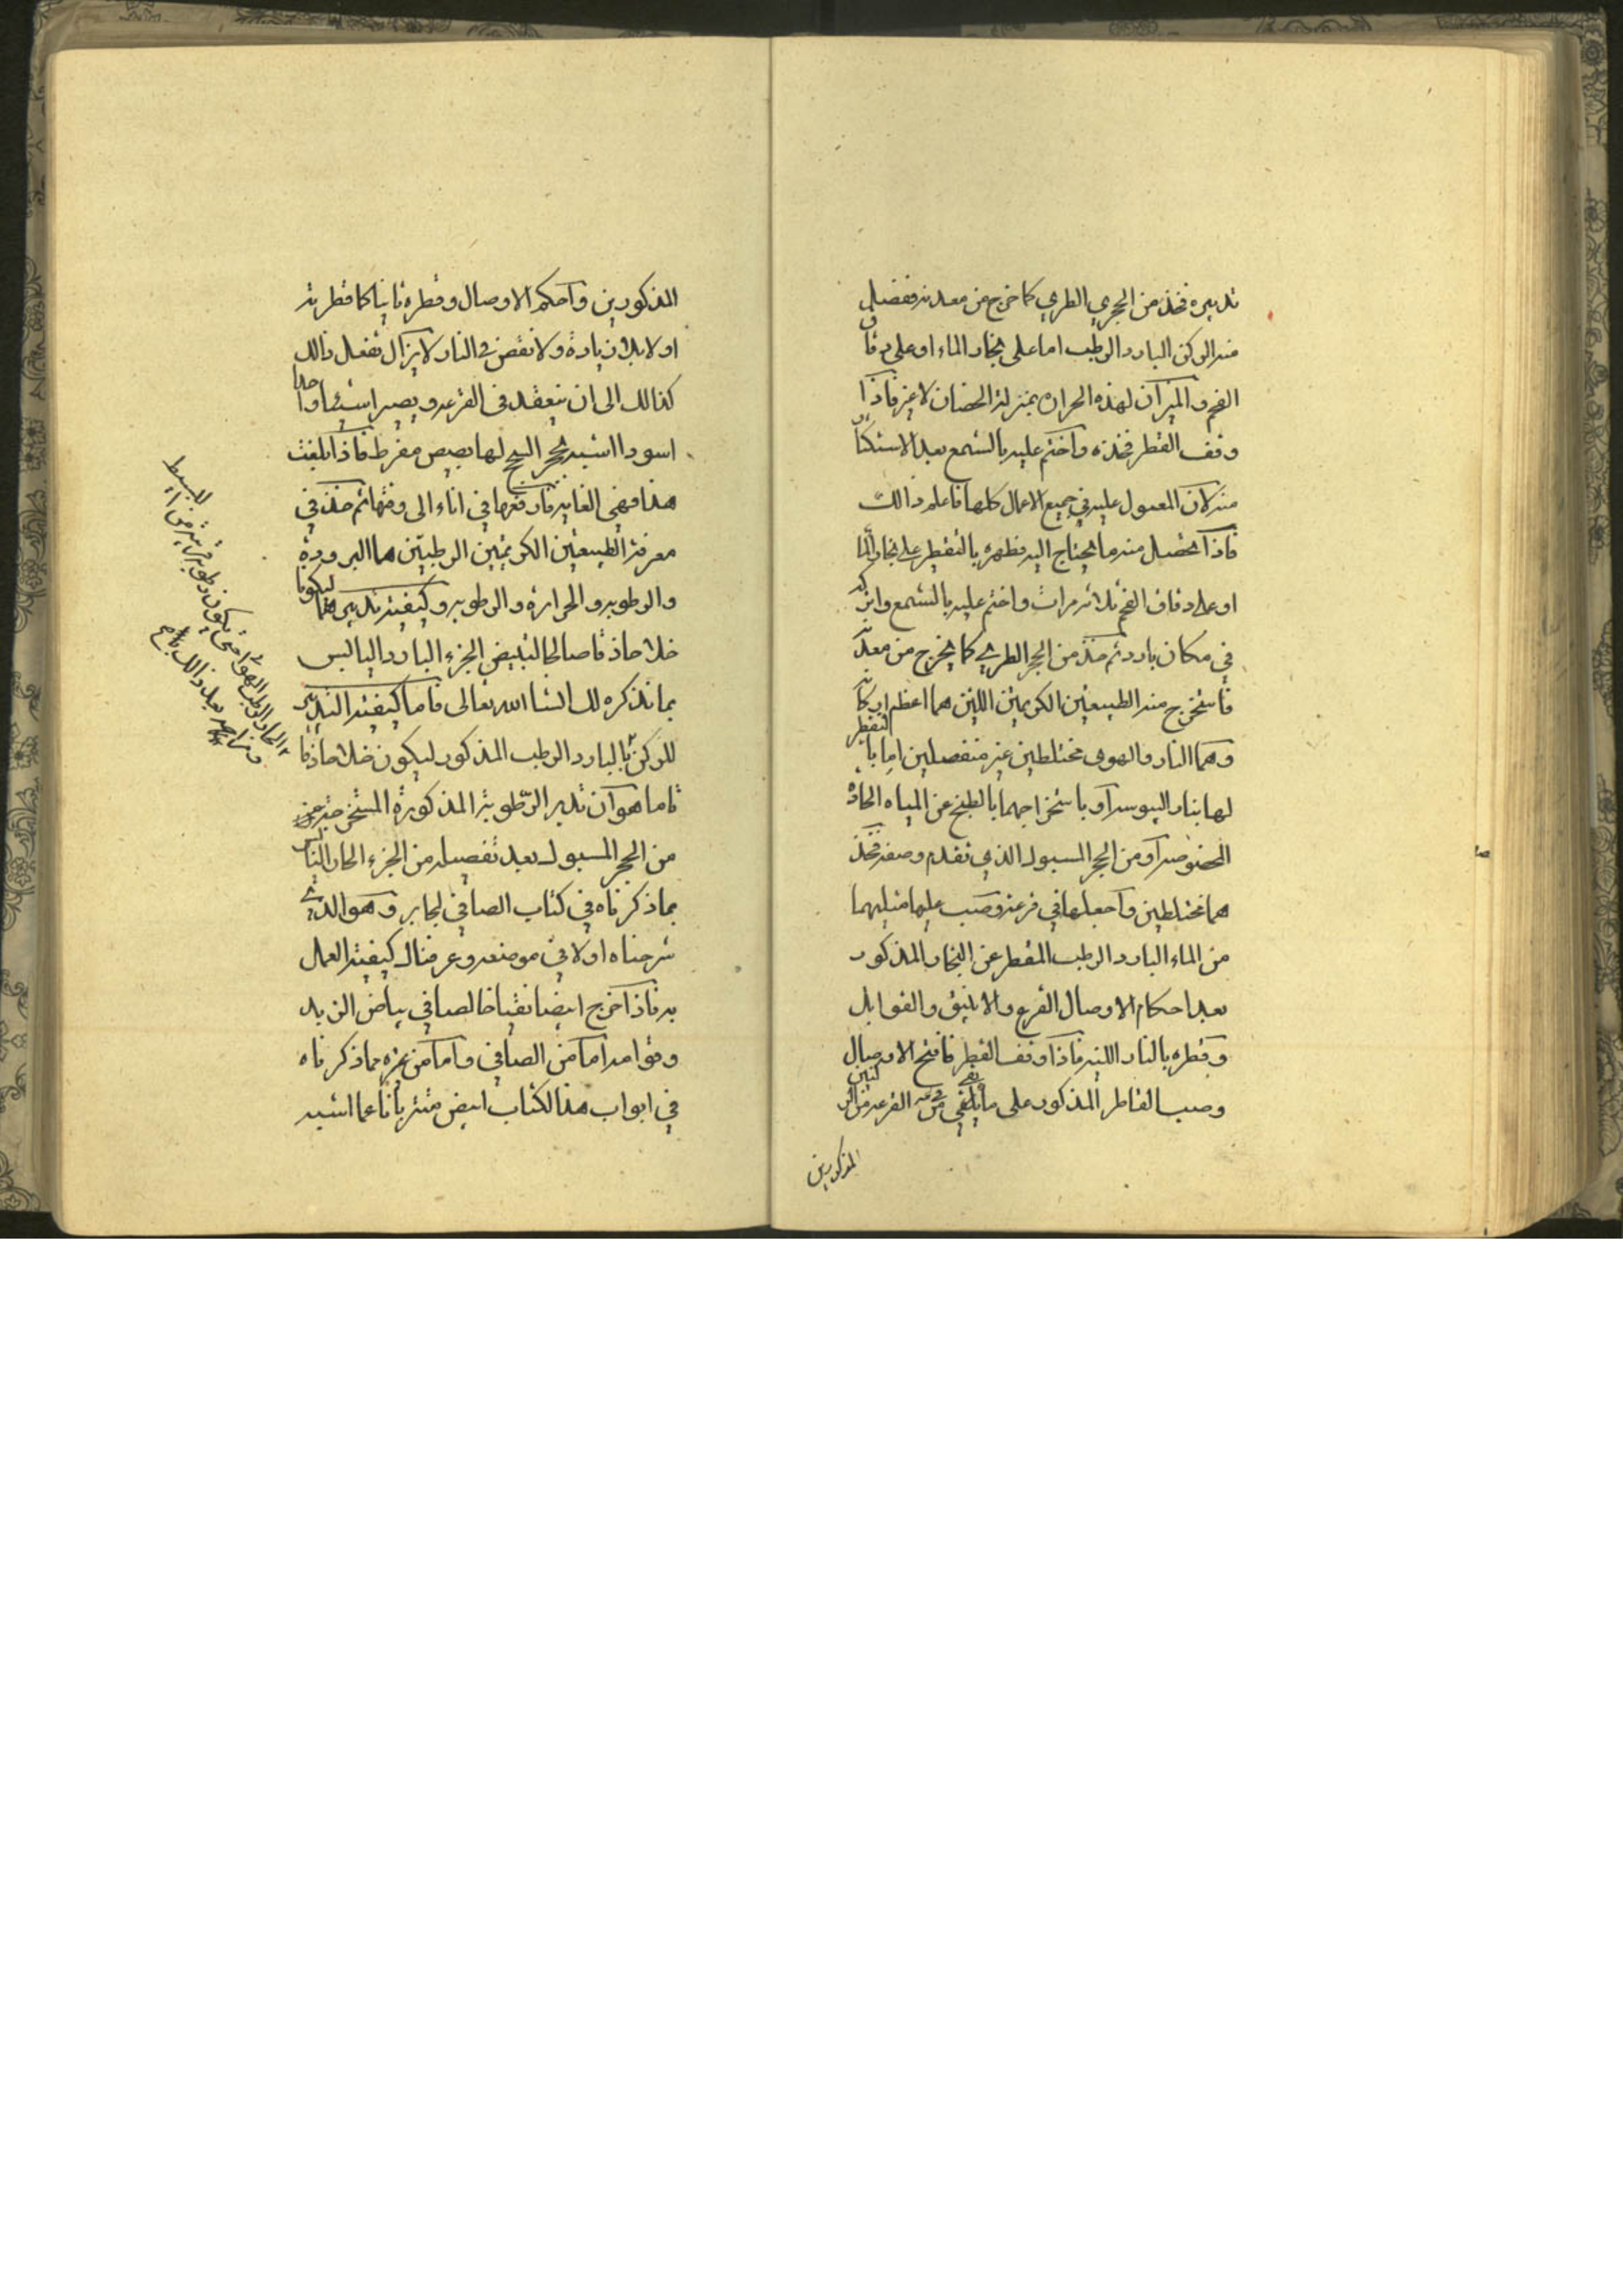 تدبيره فخذ من الحجري الطري كما خرج من معدنه ففصل
منه الركن البارد الرطب اما على بخار الماء او على دقاق
الفحم والميزان لهذه الحراره بمنزلة الحضان لا غير فاذا
وقف القطر فخذه واختم عليه بالشمع بعد الاستكثار
منه لان المعول عليه في جميع الاعمال كلها فاعلم ذالك
فاذا تحصل منه ما يحتاج اليه فطهره بالتقطير على بخار الماء
او على دقاق الفحم ثلاثه مرات واختم عليه بالشمع واتركه
في مكان بارد ثم خذ من الحجر الطري كما يخرج من معدنه
فاستخرج منه الطبيعتين الكريمتين اللتين هما اعظم اركانه
وهما النار والهوى مختلطين غير منفصلين اما بالتقطير
لها بنار اليبوسه او باستخراجهما بالطبخ عن المياه الحاده
المخصوصه او من الحجر المسبوك الذي تقدم وصفه فخذ
هما مختلطين واجعلها في قرعة وصب عليها مثليهما
من الماء البارد الرطب المقطر عن البخار المذكور
بعد احكام الاوصال القرع والانبيق والقوابل
وقطره بالنار اللينه فاذا وقف القطر فافتح الاوصال
وصب القاطر المذكور على ما بقي في القرعه من الركنين
المذكورين
المذكورين واحكم الاوصال وقطره ثانيا كما قطرته
اولا بلا زيادة ولا نقص في النار لا يزال تفعل ذالك
كذالك الى ان ينعقد في القرعه ويصير اشيئا واحدا
اسودا اشبه بحجر السبج لها بصيص مفرط فاذا بلغت
هذا فهي الغايه فارفعها في اناء الى وقتها ثم خذ في
معرفة الطبيعتين الكريمتين الرطبتين هما البرودة
والرطوبه والحرارة والرطوبه وكيفية تدبيرهما ليكونا
خلا حاذقا صالحا لتبييض الجزء البارد اليابس
بما نذكره لك انشا الله تعالى فاما كيفية التدبير
للركن البارد الرطب المذكور ليكون خلا حاذقا
فاما هو ان تدبر الرّطوبة المذكورة المستخرجة
من الحجر المسبوك بعد تفصيله من الجزء الحار اليابس
بما ذكرناه في كتاب الصافي لجابر وهو الذي
شرحناه اولا في موضعه وعرفناك كيفية العمل
به فاذا خرج ابيضا نقيا خالصا في بياض الزبد
وقوامه اما من الصافي واما من غيره مما ذكرناه
في ابواب هذا الكتاب ابيض متبريا ناعما اشبه
الحار الرطب الهوائي حتى يكون رطوبة قريبة من البسيط